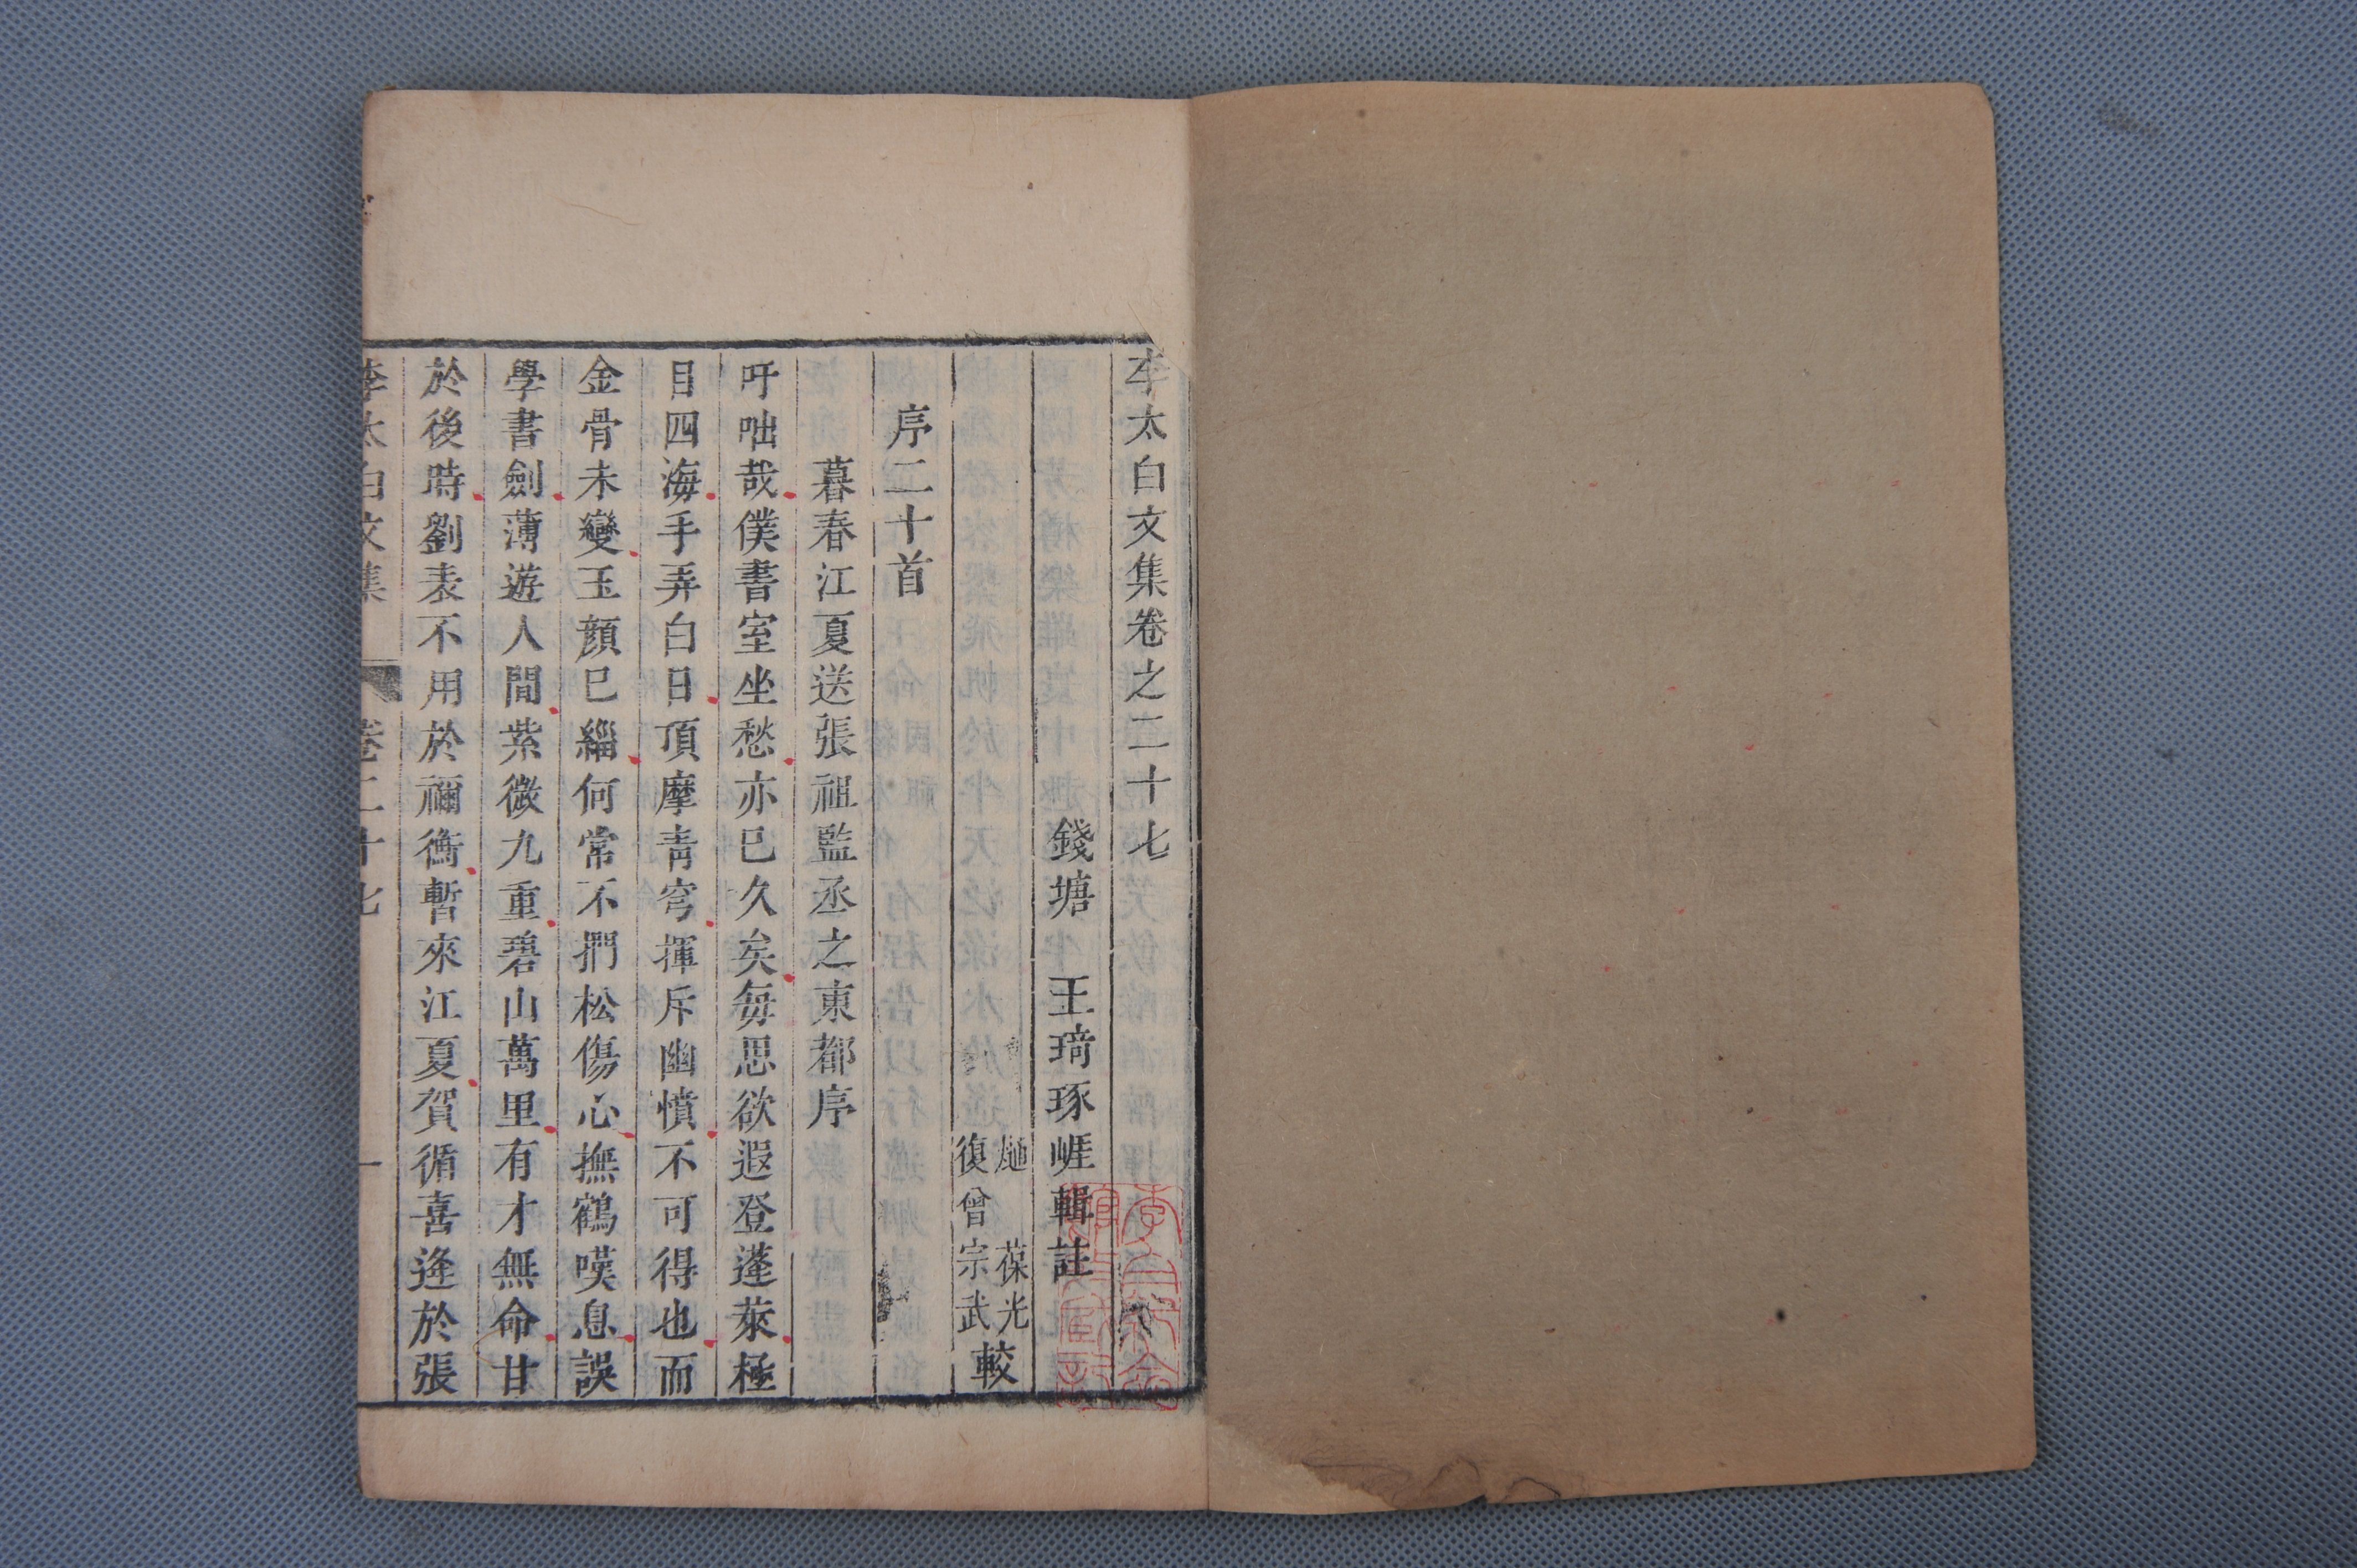 李太白文集卷之二十七
錢塘 王琦琢崖輯註
葆光
復曾宗武
較
序二十首
暮春江夏送張祖監丞之東都序
吁咄哉僕書室坐愁亦已久矣每思欲遐登蓬萊極
目四海手弄白日頂摩青穹揮斥幽憤不可得也而
金骨未變玉顏已緇何常不捫松傷心撫鶴嘆息誤
學書劍薄遊人間紫微九重碧山萬里有才無命甘
於後時劉表不用於禰衡暫來江夏賀循喜逢於張
李太白文集 卷二十七 一